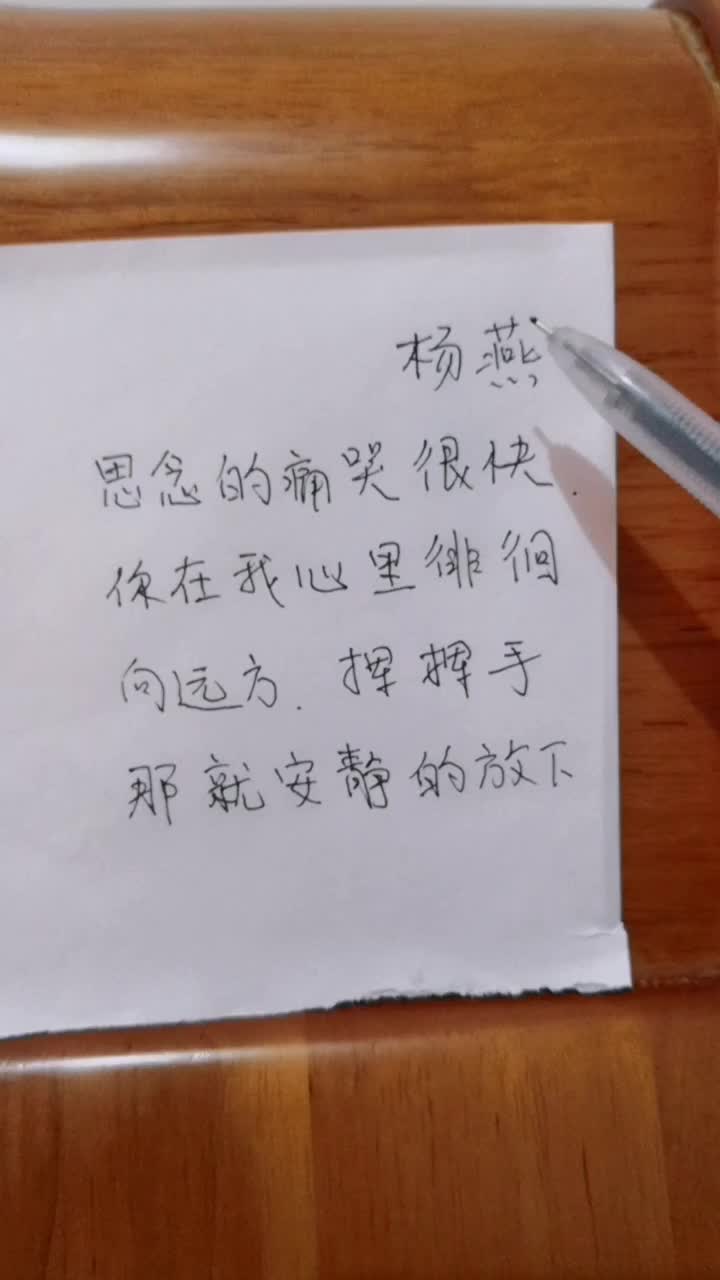 杨燕
思念的痛哭很快.
你在我心里徘徊
向远方.挥挥手
那就安静的放下